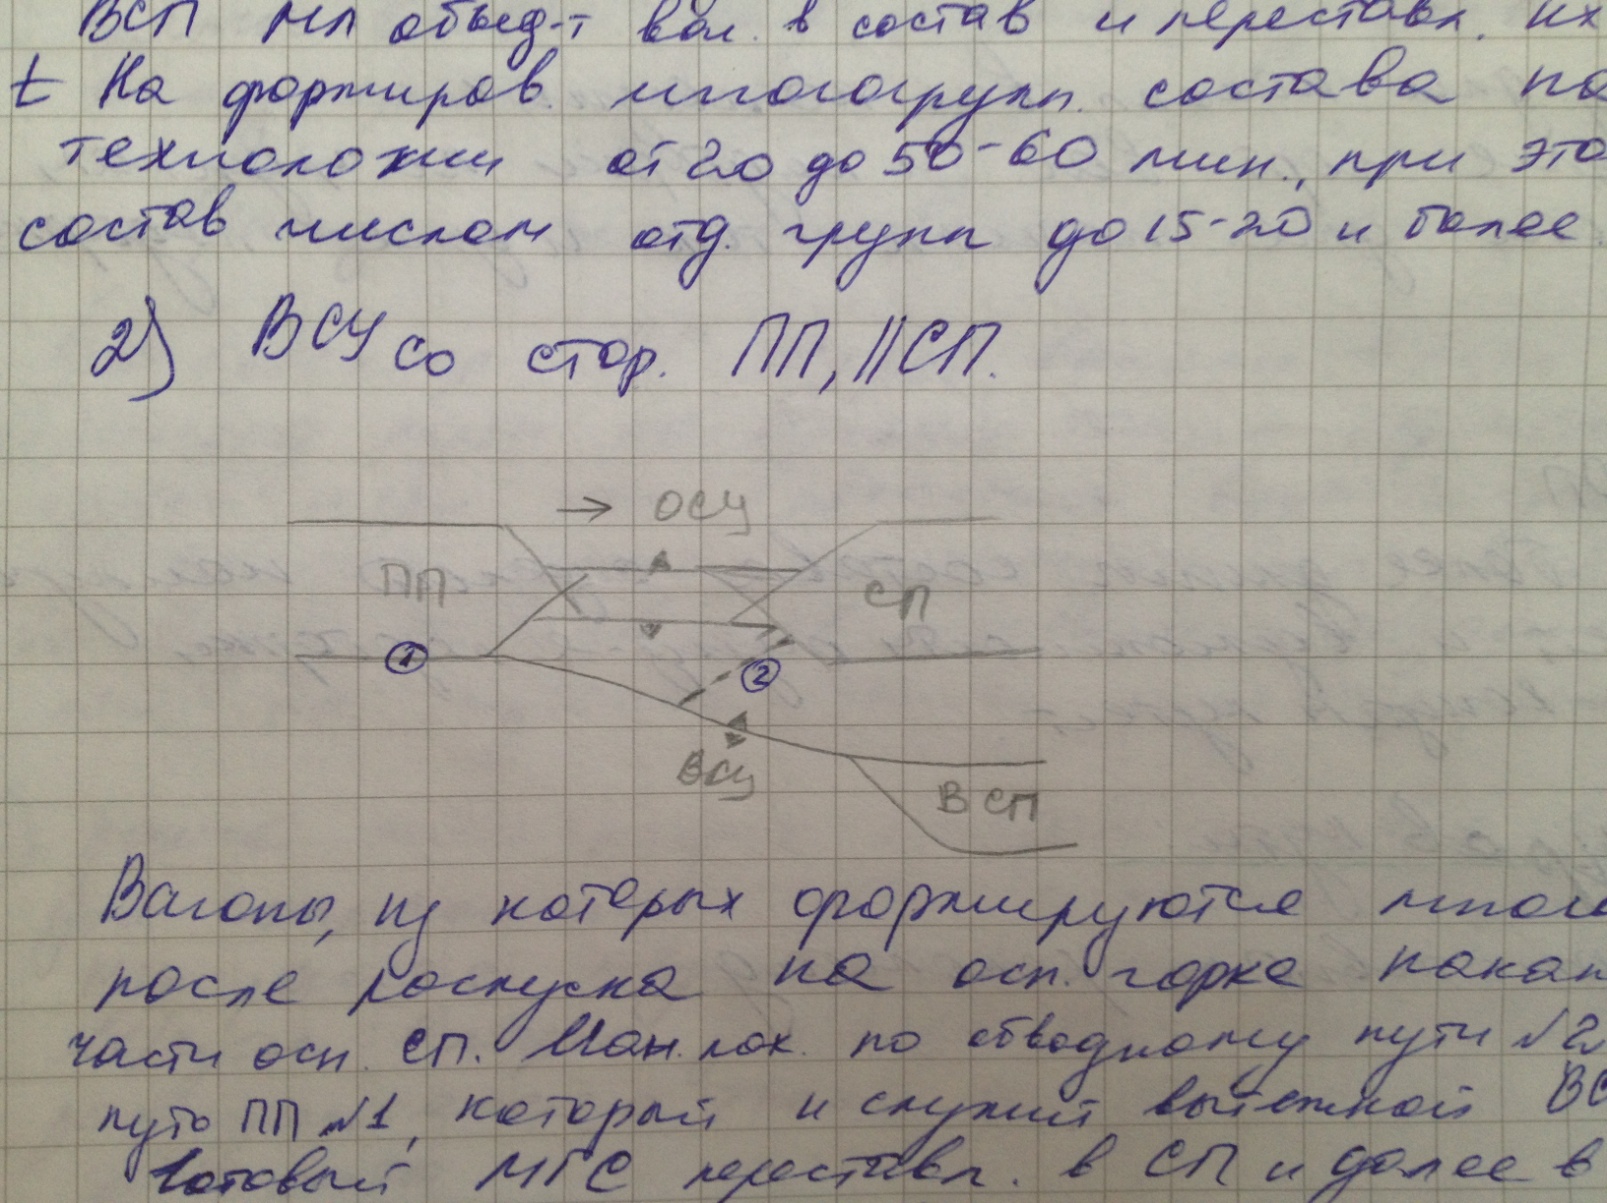 ВСП МЛ объед-т ваг. в состав и переставл. их
t На формиров. многогрупп. состава по
технологии от 20 до 50-60 мин., при это
состав числом отд. групп до 15-20 и более.
2) ВСУ со стор. ПП, ||СП.
→ ОСУ
ПП
СП
1
2
ВСУ
ВСП
Вагоны, из которых формируются много
после роспуска на осн. горке накап
части осн. СП. Ман. лок. по обводному пути №2
путь ПП №1, который и служит вытяжной ВС
Готовый МГС переставл. в СП и далее в